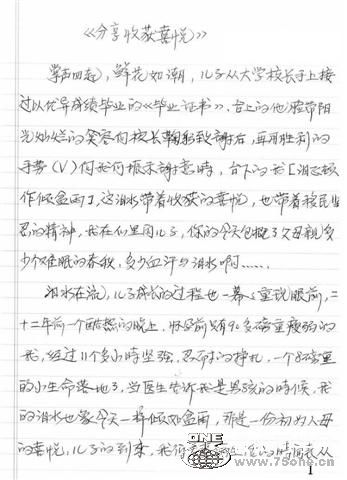 《分享收获喜悦》
掌声四起,鲜花如潮,儿子从大学校长手上接
过以优异成绩毕业的《毕业证书》,台上的他脸带阳
光灿烂的笑容向校长鞠躬致谢后,再用胜利的
手势(V)向我们表示谢意時,台下的我「泪
作倾盆雨」,这泪水带着收获的喜悦,也带着移民坚
忍的精神,我在心里问儿子,你的今天包含了父母親多
少个难眠的春秋,多少血汗与泪水啊……
泪水在流,儿子成长的过程也一幕幕重现眼前,二
十二年前一个酷熱的晚上,怀孕前只有90多磅重瘦弱的
我,经过11个多小時坚强、忍耐的挣扎,一个8磅重
的小生命落地了,当医生告诉我是男孩的時候,我
的泪水也象今天一样倾如盆雨,那是一份初为人母
的喜悦,儿子的到来,我们
ONE
www.79one.cn
1